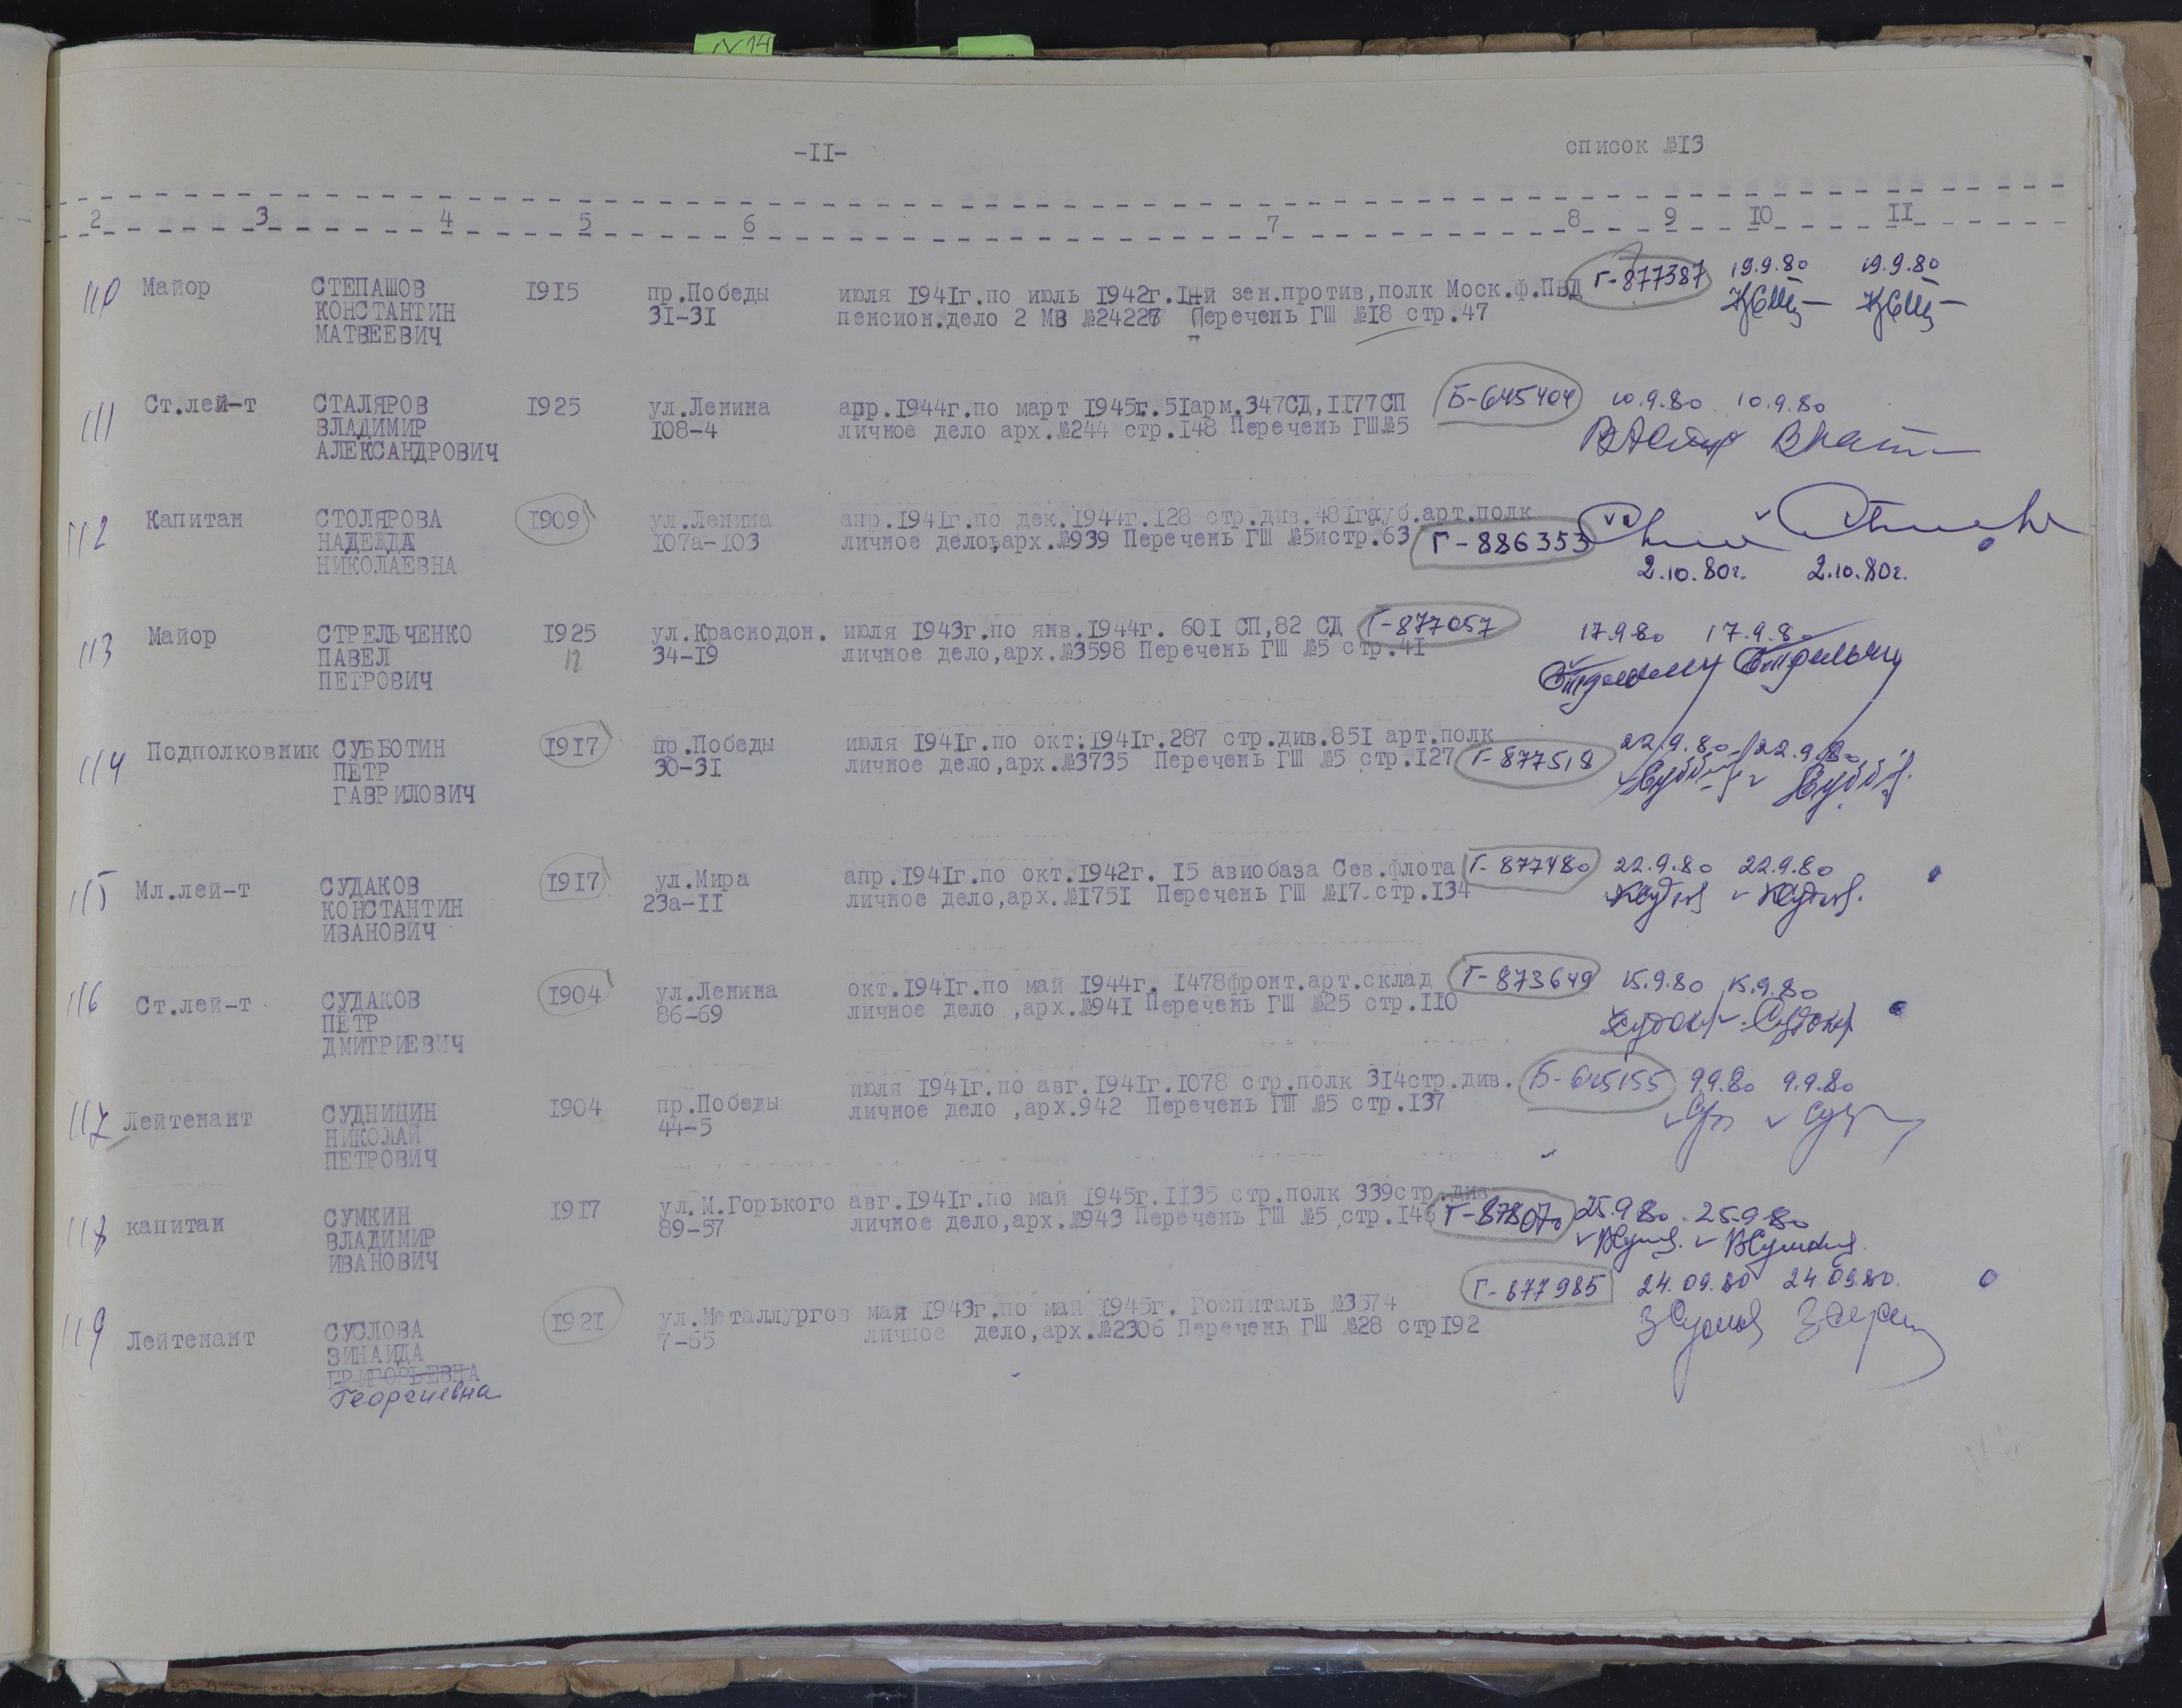 N 14
-II-
список №I3
2 3 4 5 6 7 8 9 IO II
110 Майор СТЕПАШОВ I9I5 пр.Победы июля I94Iг.по июль I942г. зен.против,полк Моск.ф.ПВД Г-877387 19.9.80 19.9.80
КОНСТАНТИН 3I-3I пенсион.дело 2 МВ Перечень ГШ №I8 стр.47
МАТВЕЕВИЧ
111 Ст.лей-т СТАЛЯРОВ I925 ул.Ленина апр.I944г.по март I945г.5Iарм.347СД,II77СП Б-645404 10.9.80 10.9.80
ВЛАДИМИР I08-4 личное дело арх.№244 стр.I48 Перечень ГШ№5
АЛЕКСАНДРОВИЧ
112 Капитан СТОЛЯРОВА I909 ул.Ленина апр.I94Iг.по дек.I944г.I28 стр.див.48Iгауб.арт.полк
НАДЕЖДА I07а-I03 личное дело,арх.№939 Перечень ГШ №5истр.63 Г-886353
НИКОЛАЕВНА 2.10.80г. 2.10.80г.
113 Майор СТРЕЛЬЧЕНКО I925 ул.Краснодон. июля I943г.по янв.I944г. 60I СП,82 СД Г-877057 17.9.80 17.9.80
ПАВЕЛ 12 34-I9 личное дело,арх.№3598 Перечень ГШ №5 стр.4I
ПЕТРОВИЧ
114 Подполковник СУББОТИН I9I7 пр.Победы июля I94Iг.по окт:I94Iг.287 стр.див.85I арт.полк 22.9.80 22.9.80
ПЕТР 30-3I личное дело,арх.№3735 Перечень ГШ №5 стр.I27 Г-877518
ГАВРИЛОВИЧ
115 Мл.лей-т СУДАКОВ I9I7 ул.Мира апр.I94Iг.по окт.I942г. I5 авиобаза Сев.флота Г-877480 22.9.80 22.9.80
КОНСТАНТИН 23а-II личное дело,арх.№I75I Перечень ГШ №I7.стр.I34
ИВАНОВИЧ
116 Ст.лей-т. СУДАКОВ I904 ул.Ленина окт.I94Iг.по май I944г. I478фронт.арт.склад Г-873649 15.9.80 15.9.80
ПЕТР 86-69 личное дело ,арх.№94I Перечень ГШ №25 стр.IIO
ДМИТРИЕВИЧ
июля I94Iг.по авг.I94Iг.I078 стр.полк 3I4стр.див. Б-645155 9.9.80 9.9.80
117 Лейтенант СУДНИЦИН I904 пр.Победы личное дело ,арх.942 Перечень ГШ №5 стр.I37
НИКОЛАЙ 44-5
ПЕТРОВИЧ
118 капитан СУМКИН I9I7 ул.М.Горького авг.I94Iг.по май I945г.II35 стр.полк 339стр.див
ВЛАДИМИР 89-57 личное дело,арх.№943 Перечень ГШ №5 ,стр.I46 Г-878070 25.9.80. 25.9.80
ИВАНОВИЧ
Г-877985 24.09.80 24.09.80.
119 Лейтенант СУСЛОВА I92I ул.Металлургов мая I943г.по май I945г. Госпиталь №3574
ЗИНАИДА 7-65 личное дело,арх.№2306 Перечень ГШ №28 стрI92
ГРИГОРЬЕВНА
Георгиевна